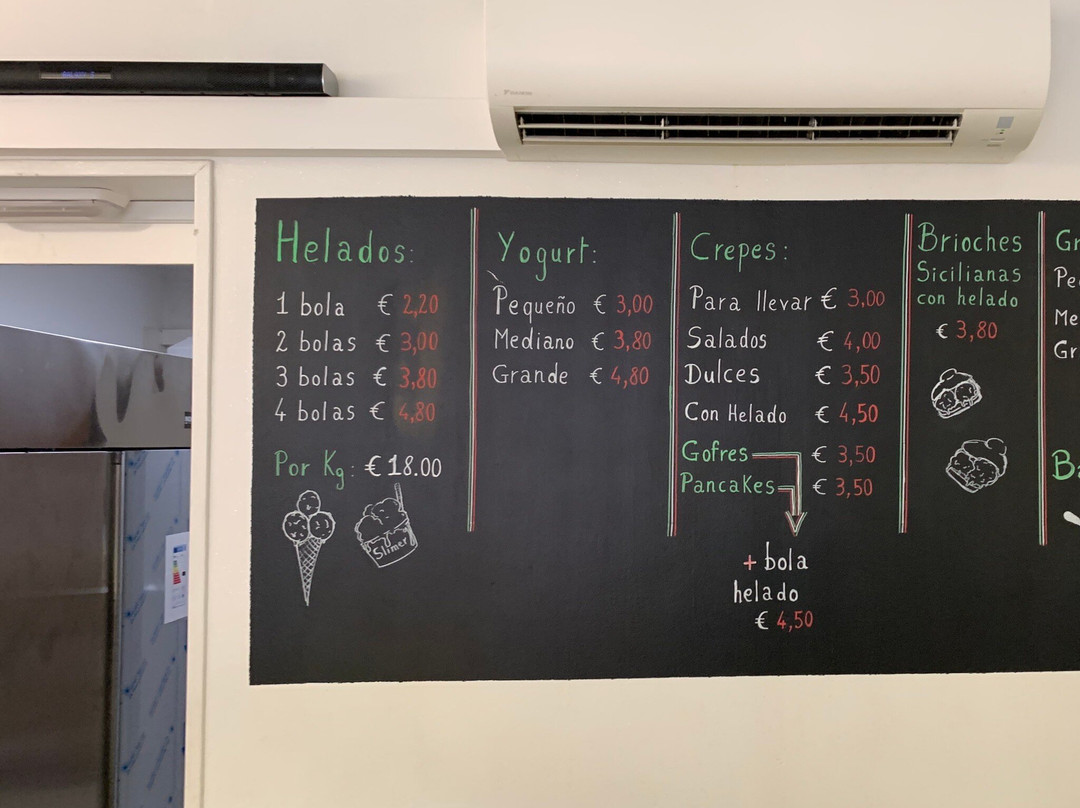 DAIKIN
Helados:
1 bola € 2,20
2 bolas € 3,00
3 bolas € 3,80
4 bolas € 4,80
Por Kg: € 18.00
Slimer
Yogurt:
Pequeño € 3,00
Mediano € 3,80
Grande € 4,80
Crepes:
Para llevar € 3,00
Salados € 4,00
Dulces € 3,50
Con Helado € 4,50
Gofres € 3,50
Pancakes € 3,50
+ bola
helado
€ 4,50
Brioches
Sicilianas
con helado
€ 3,80
Gr
Pe
Me
Gr
Ba